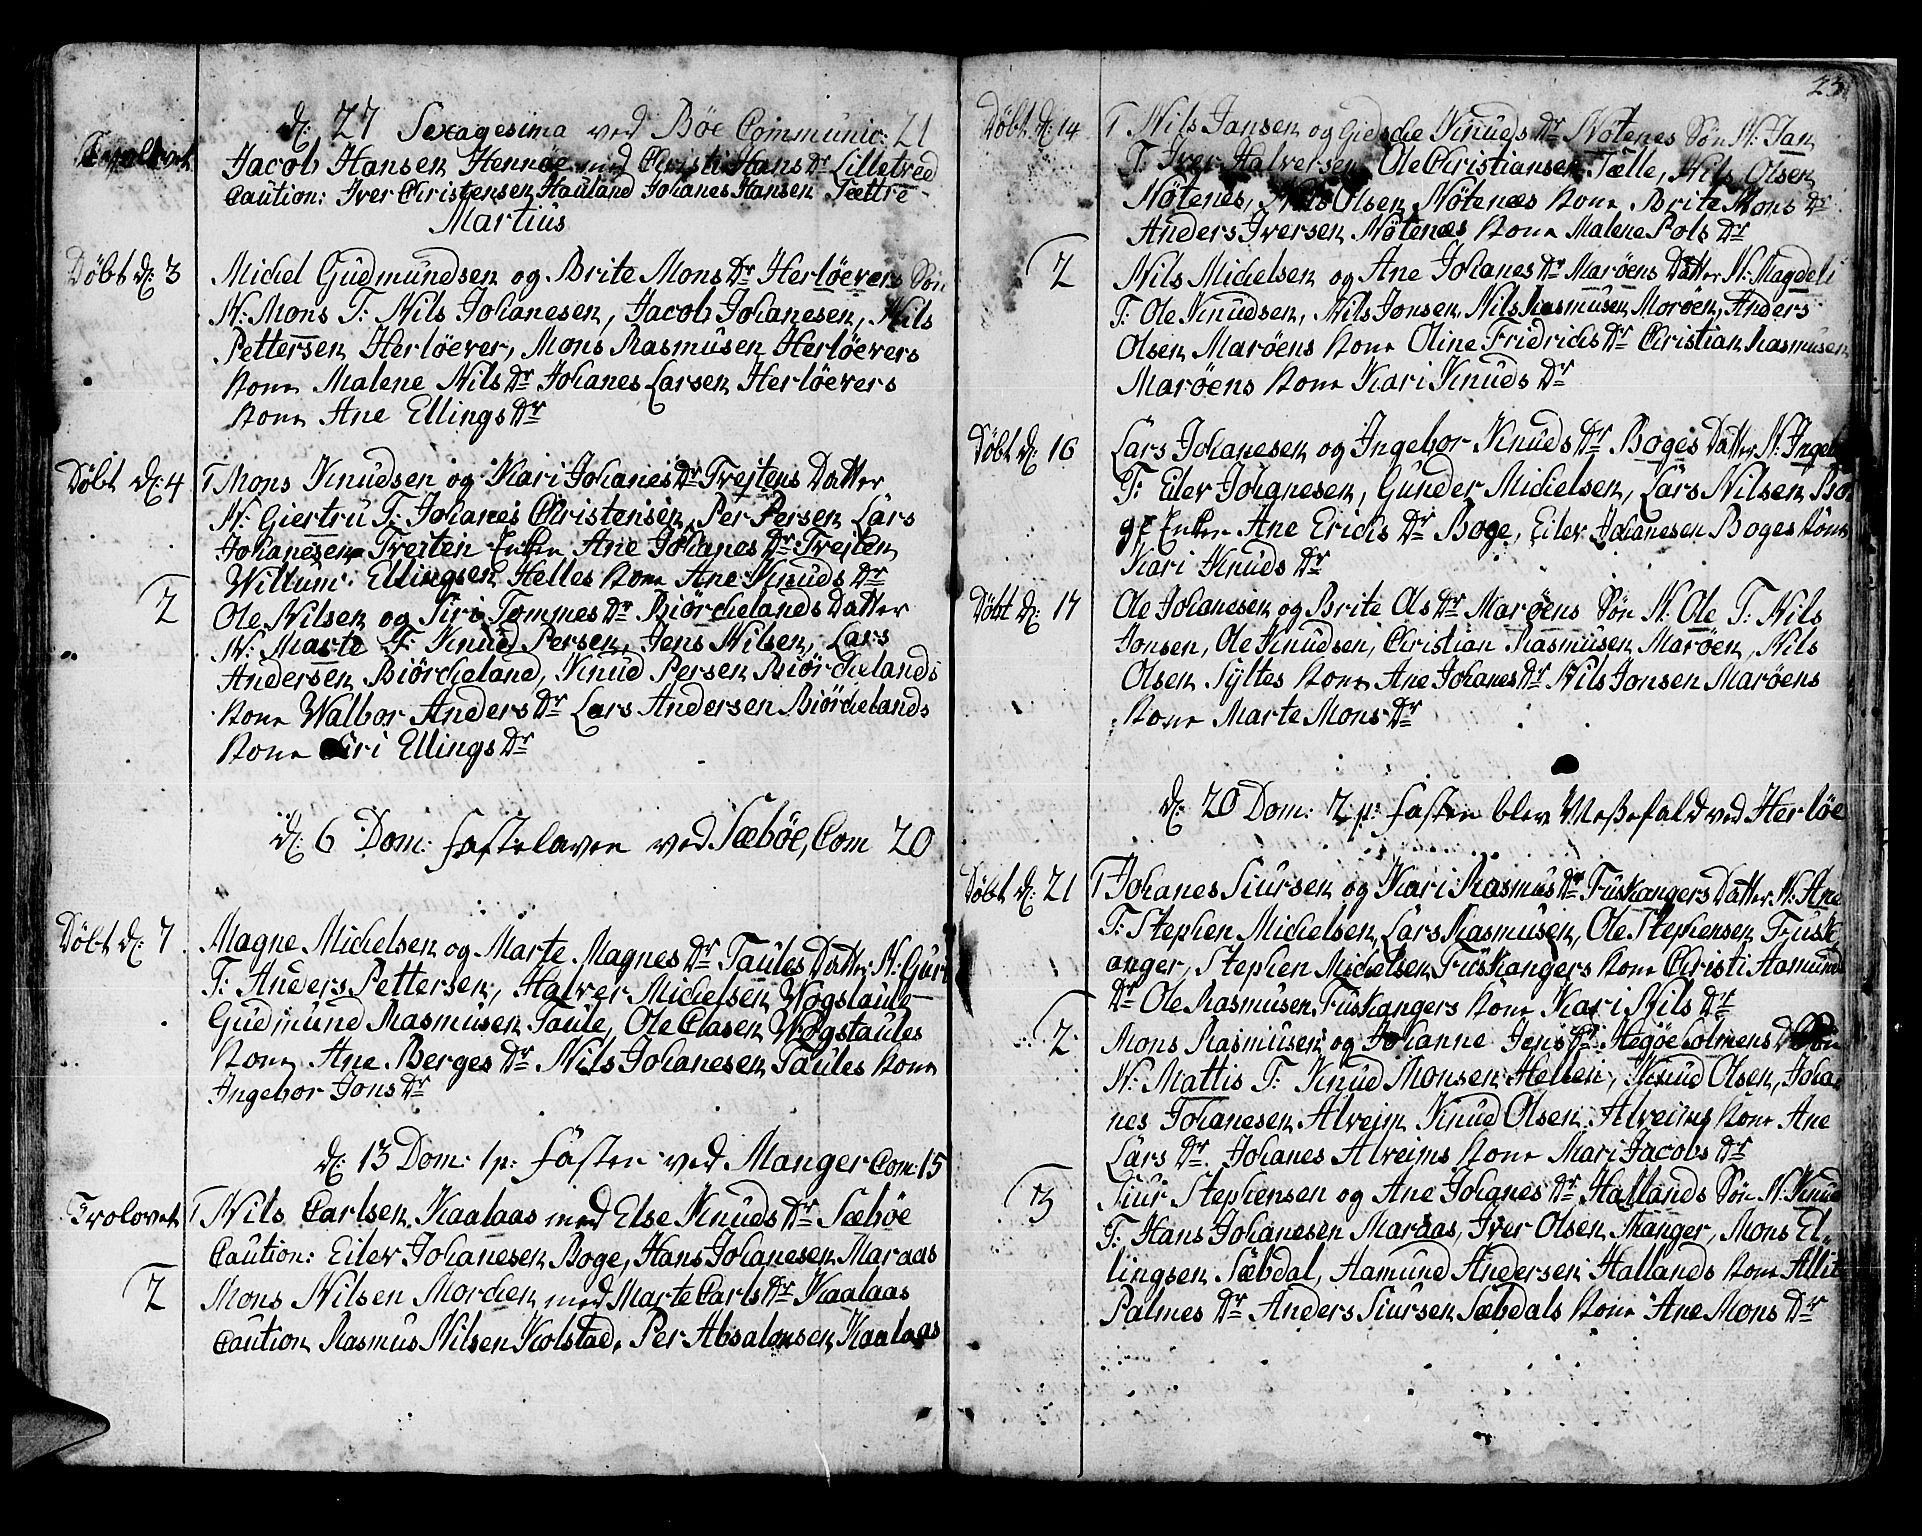 d: 27 Sexagesima ved Böe Communic: 21
Trolovet Jacob Hansen Hennöe med Christi Hans Dr Lilletved
Caution: Iver Christensen Hauland Johanes Hansen Sættre
Martius
Döbt d: 3 Michel Gudmundsen og Brite Mons Dr Herlöevers Sön
N: Mons T: Nils Johanesen, Jacob Johanesen, Nils
Pettersen Herlöever, Mons Rasmusen Herlöevers
Kone Malene Nils Dr Johanes Larsen Herlöevers
Kone Ane Ellings Dr
Döbt d: 4 1 Mons Knudsen og Kari Johanes Dr Trejtens Datter
N: Giertru T: Johanes Christensen, Per Persen Lars
Johanesen Trejten Enken Ane Johanes Dr Trejten
Willum Ellingsen Helles Kone Ane Knuds Dr
2 Ole Nilsen og Siri Tommes Dr Biörchelands Datter
N: Marte T: Knud Persen, Jens Nilsen, Lars
Andersen Biörcheland, Knud Persen Biörchelands
Kone Walbor Anders Dr Lars Andersen Biörchelands
Kone Siri Ellings Dr
d: 6 Dom: fastelaven ved Sæböe, Com 20
Döbt d: 7 Magne Michelsen og Marte Magnes Dr Taules Datter N: Guri
T: Anders Pettersen, Halver Michelsen Wogstaule
Gudmund Rasmusen Taule, Ole Clasen Wogstaules
Kone Ane Berges Dr Nils Johanesen Taules Kone
Ingebor Jons Dr
d: 13 Dom: 1 p: fasten ved Manger Com: 15
Trolovet 1 Nils Carlsen Kaalaas med Else Knuds Dr Sæböe
Caution: Eilev Johanesen Boge, Hans Johanesen Maraas
2 Mons Nilsen Morchen med Marte Carls Dr Kaalaas
Caution Rasmus Nilsen Kolstad, Per Absalonsen Kaalaas
23
Döbt d: 14 1 Nils Jansen og Giedsche Knuds Dr Nötenes Sön N: Jan
T: Iver Halversen Ole Christiansen Tælle, Nils Olsen
Nötenes, Nils Olsen Nötenæs Kone Brite Mons Dr
Anders Iversen Nötenæs Kone Malene Pols Dr
2 Nils Michelsen og Ane Johanes Dr Maröens Datter N: Magdeli
T: Ole Knudsen, Nils Jonsen Nils Rasmusen Moröen, Anders
Olsen Maröens Kone Oline Fridrichs Dr Christian Rasmusen
Maröens Kone Kari Knuds Dr
Döbt d: 16 Lars Johanesen og Ingebor Knuds Dr Boges Datter N: Ingeb
T: Eilev Johanesen, Gunder Michelsen, Lars Nilsen Bo
ge Enken Ane Erichs Dr Boge, Eilev Johanesen Boges Kone
Kari Knuds Dr
Döbt d: 17 Ole Johanesen og Brite Ols Dr Maröens Sön N: Ole T: Nils
Jonsen, Ole Knudsen, Christian Rasmusen Maröen, Nils
Olsen Syltes Kone Ane Johanes Dr Nils Jonsen Maröens
Kone Marte Mons Dr
d: 20 Dom: 2 p: fasten blev Meßefald ved Herlöe
Döbt d: 21 1 Johanes Siursen og Kari Rasmus Dr Fuskangers Datter N: Ane
T: Stephen Michelsen, Lars Rasmusen, Ole Stephensen Fusk
anger, Stephen Michelsen Fuskangers Kone Christi Aamund
Dr Ole Rasmusen Fuskangers Kone Kari Nils Dr
2 Mons Rasmusen og Johanne Jens Dr Hegöeholmens Sön
N: Mattis T: Knud Monsen Hellen, Knud Olsen, Joha
nes Johanesen Alveim Knud Olsen Alveims Kone Ane
Lars Dr Johanes Alveims Kone Mari Jacobs Dr
3 Siur Stephensen og Ane Johanes Dr Hallands Sön N: Knud
T: Hans Johanesen Maraas, Iver Olsen Manger, Mons El=
lingsen Sæbdal, Aamund Andersen Hallands Kone Allit
Palmes Dr Anders Siursen Sæbdals Kone Ane Mons Dr